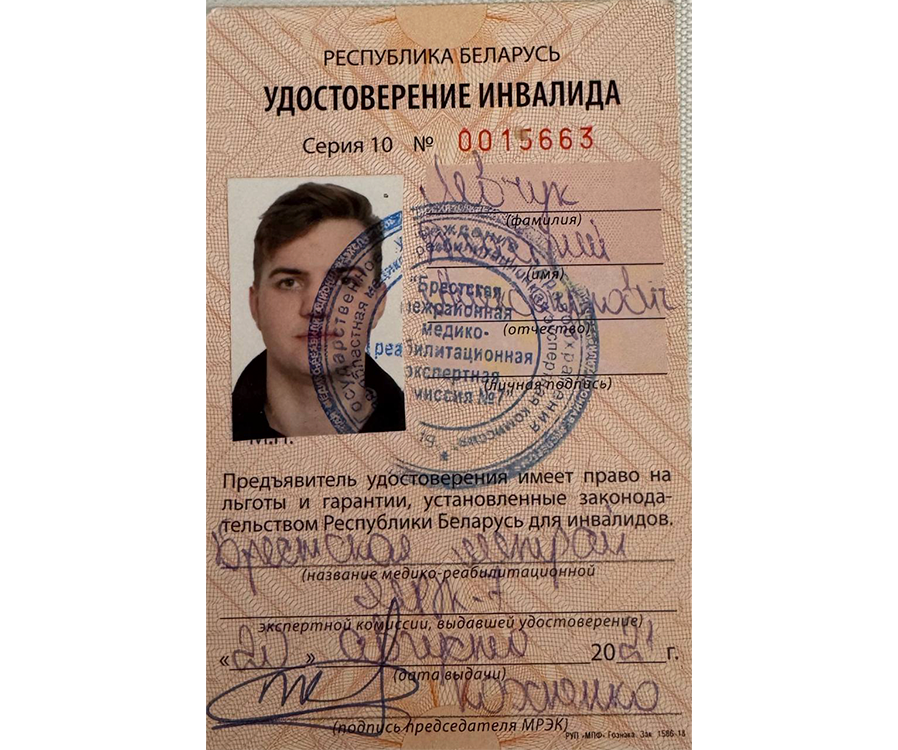 РЕСПУБЛИКА БЕЛАРУСЬ
УДОСТОВЕРЕНИЕ ИНВАЛИДА
Серия 10 № 0015663
Левчук
(фамилия)
(имя)
(отчество)
(личная подпись)
"Брестская
межрайонная
медико-
реабилитационная
экспертная
комиссия №7"
М.П.
Предъявитель удостоверения имеет право на
льготы и гарантии, установленные законода-
тельством Республики Беларусь для инвалидов.
Брестская
(название медико-реабилитационной
экспертной комиссии, выдавшей удостоверение)
«20» 2021 г.
(дата выдачи)
(подпись председателя МРЭК)
РУП «МПФ» Гознака. Зак. 1586-18